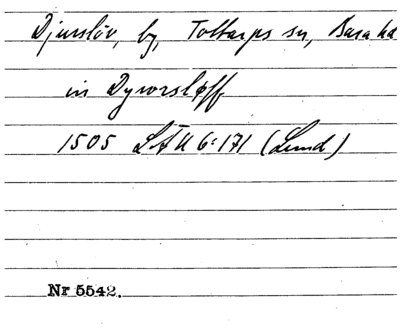 Djurslöv, by, Tottarps sn, Bara hd
in Dyworsløff
1505 LÄU 6:171 (Lund)
Nr 5542.